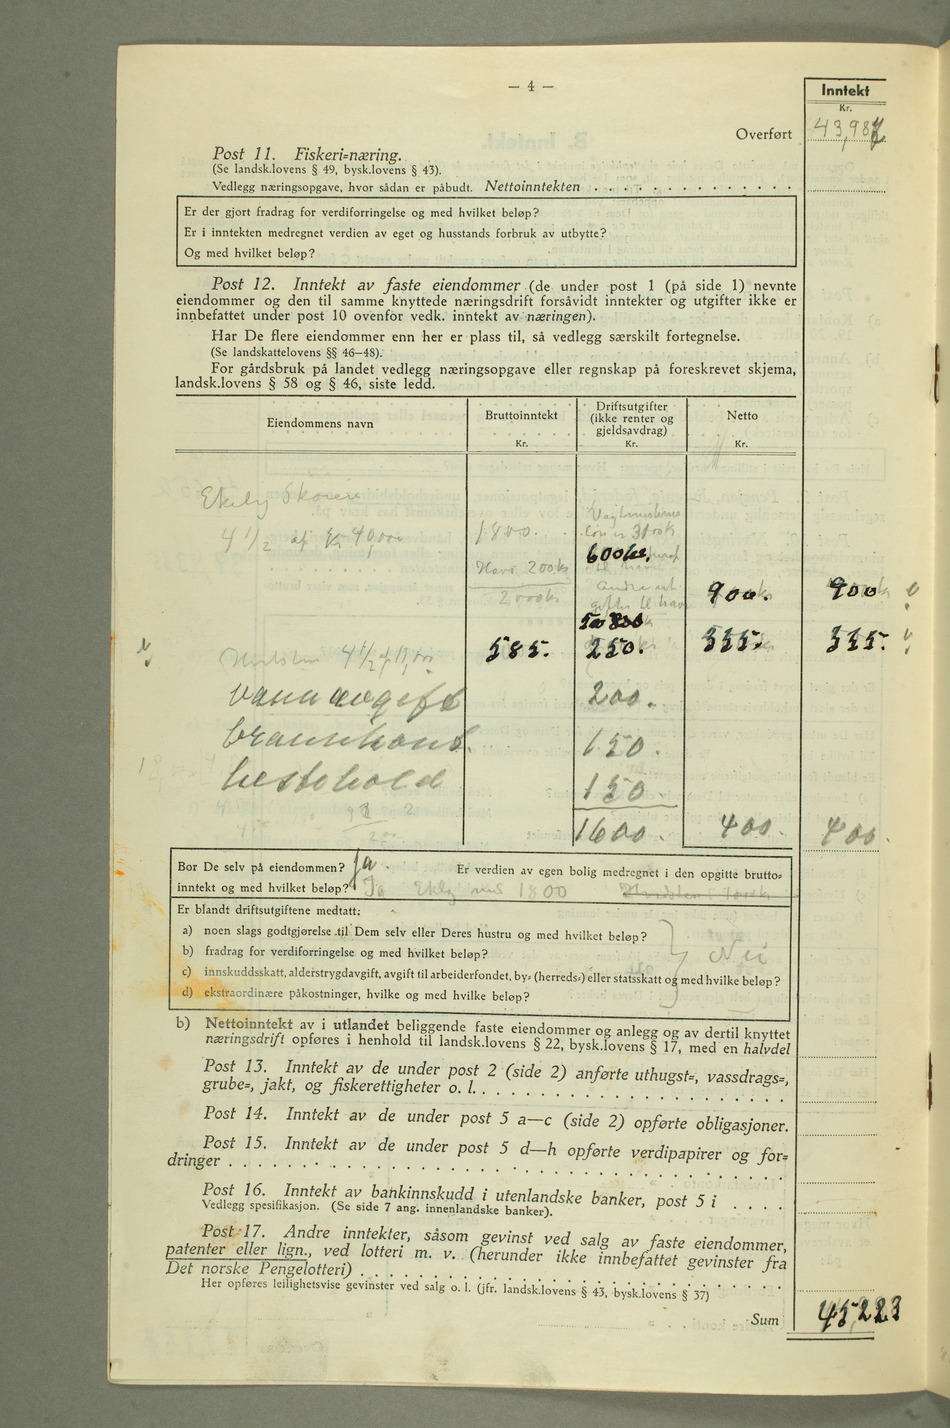 — 4 —
Inntekt
Kr.
Overført
43,987
Post 11. Fiskeri=næring.
(Se landsk.lovens § 49, bysk.lovens § 43).
Vedlegg næringsopgave, hvor sådan er påbudt. Nettoinntekten
Er der gjort fradrag for verdiforringelse og med hvilket beløp?
Er i inntekten medregnet verdien av eget og husstands forbruk av utbytte?
Og med hvilket beløp?
Post 12. Inntekt av faste eiendommer (de under post 1 (på side 1) nevnte
eiendommer og den til samme knyttede næringsdrift forsåvidt inntekter og utgifter ikke er
innbefattet under post 10 ovenfor vedk. inntekt av næringen).
Har De flere eiendommer enn her er plass til, så vedlegg særskilt fortegnelse.
(Se landskattelovens §§ 46—48).
For gårdsbruk på landet vedlegg næringsopgave eller regnskap på foreskrevet skjema,
landsk.lovens § 58 og § 46, siste ledd.
Eiendommens navn
Bruttoinntekt
Kr.
Driftsutgifter
(ikke renter og
gjeldsavdrag)
Kr.
Netto
Kr.
Ekely Skøien
4 1/2 af Kr 40,000
1800.
600
Have 200 kr
2000 kr
900.
900
Hvitsten 4 1/2 af 13,000
585.
250.
335.
335.
vannavgift
200.
brannkont.
150.
hestehold
150.
1600.
400.
400.
Bor De selv på eiendommen? Ja. Er verdien av egen bolig medregnet i den opgitte brutto=
inntekt og med hvilket beløp? Ja Ekely med 1800
Er blandt driftsutgiftene medtatt:
a) noen slags godtgjørelse til Dem selv eller Deres hustru og med hvilket beløp?
b) fradrag for verdiforringelse og med hvilket beløp?
Nei
c) innskuddsskatt, alderstrygdavgift, avgift til arbeiderfondet, by= (herreds=) eller statsskatt og med hvilke beløp?
d) ekstraordinære påkostninger, hvilke og med hvilke beløp?
b) Nettoinntekt av i utlandet beliggende faste eiendommer og anlegg og av dertil knyttet
næringsdrift opføres i henhold til landsk.lovens § 22, bysk.lovens § 17, med en halvdel
Post 13. Inntekt av de under post 2 (side 2) anførte uthugst=, vassdrags=,
grube=, jakt, og fiskerettigheter o. l.
Post 14. Inntekt av de under post 5 a—c (side 2) opførte obligasjoner.
Post 15. Inntekt av de under post 5 d—h opførte verdipapirer og for=
dringer
Post 16. Inntekt av bankinnskudd i utenlandske banker, post 5 i
Vedlegg spesifikasjon. (Se side 7 ang. innenlandske banker).
Post 17. Andre inntekter, såsom gevinst ved salg av faste eiendommer,
patenter eller lign., ved lotteri m. v. (herunder ikke innbefattet gevinster fra
Det norske Pengelotteri)
Her opføres leilighetsvise gevinster ved salg o. l. (jfr. landsk.lovens § 43, bysk.lovens § 37)
Sum
45,223